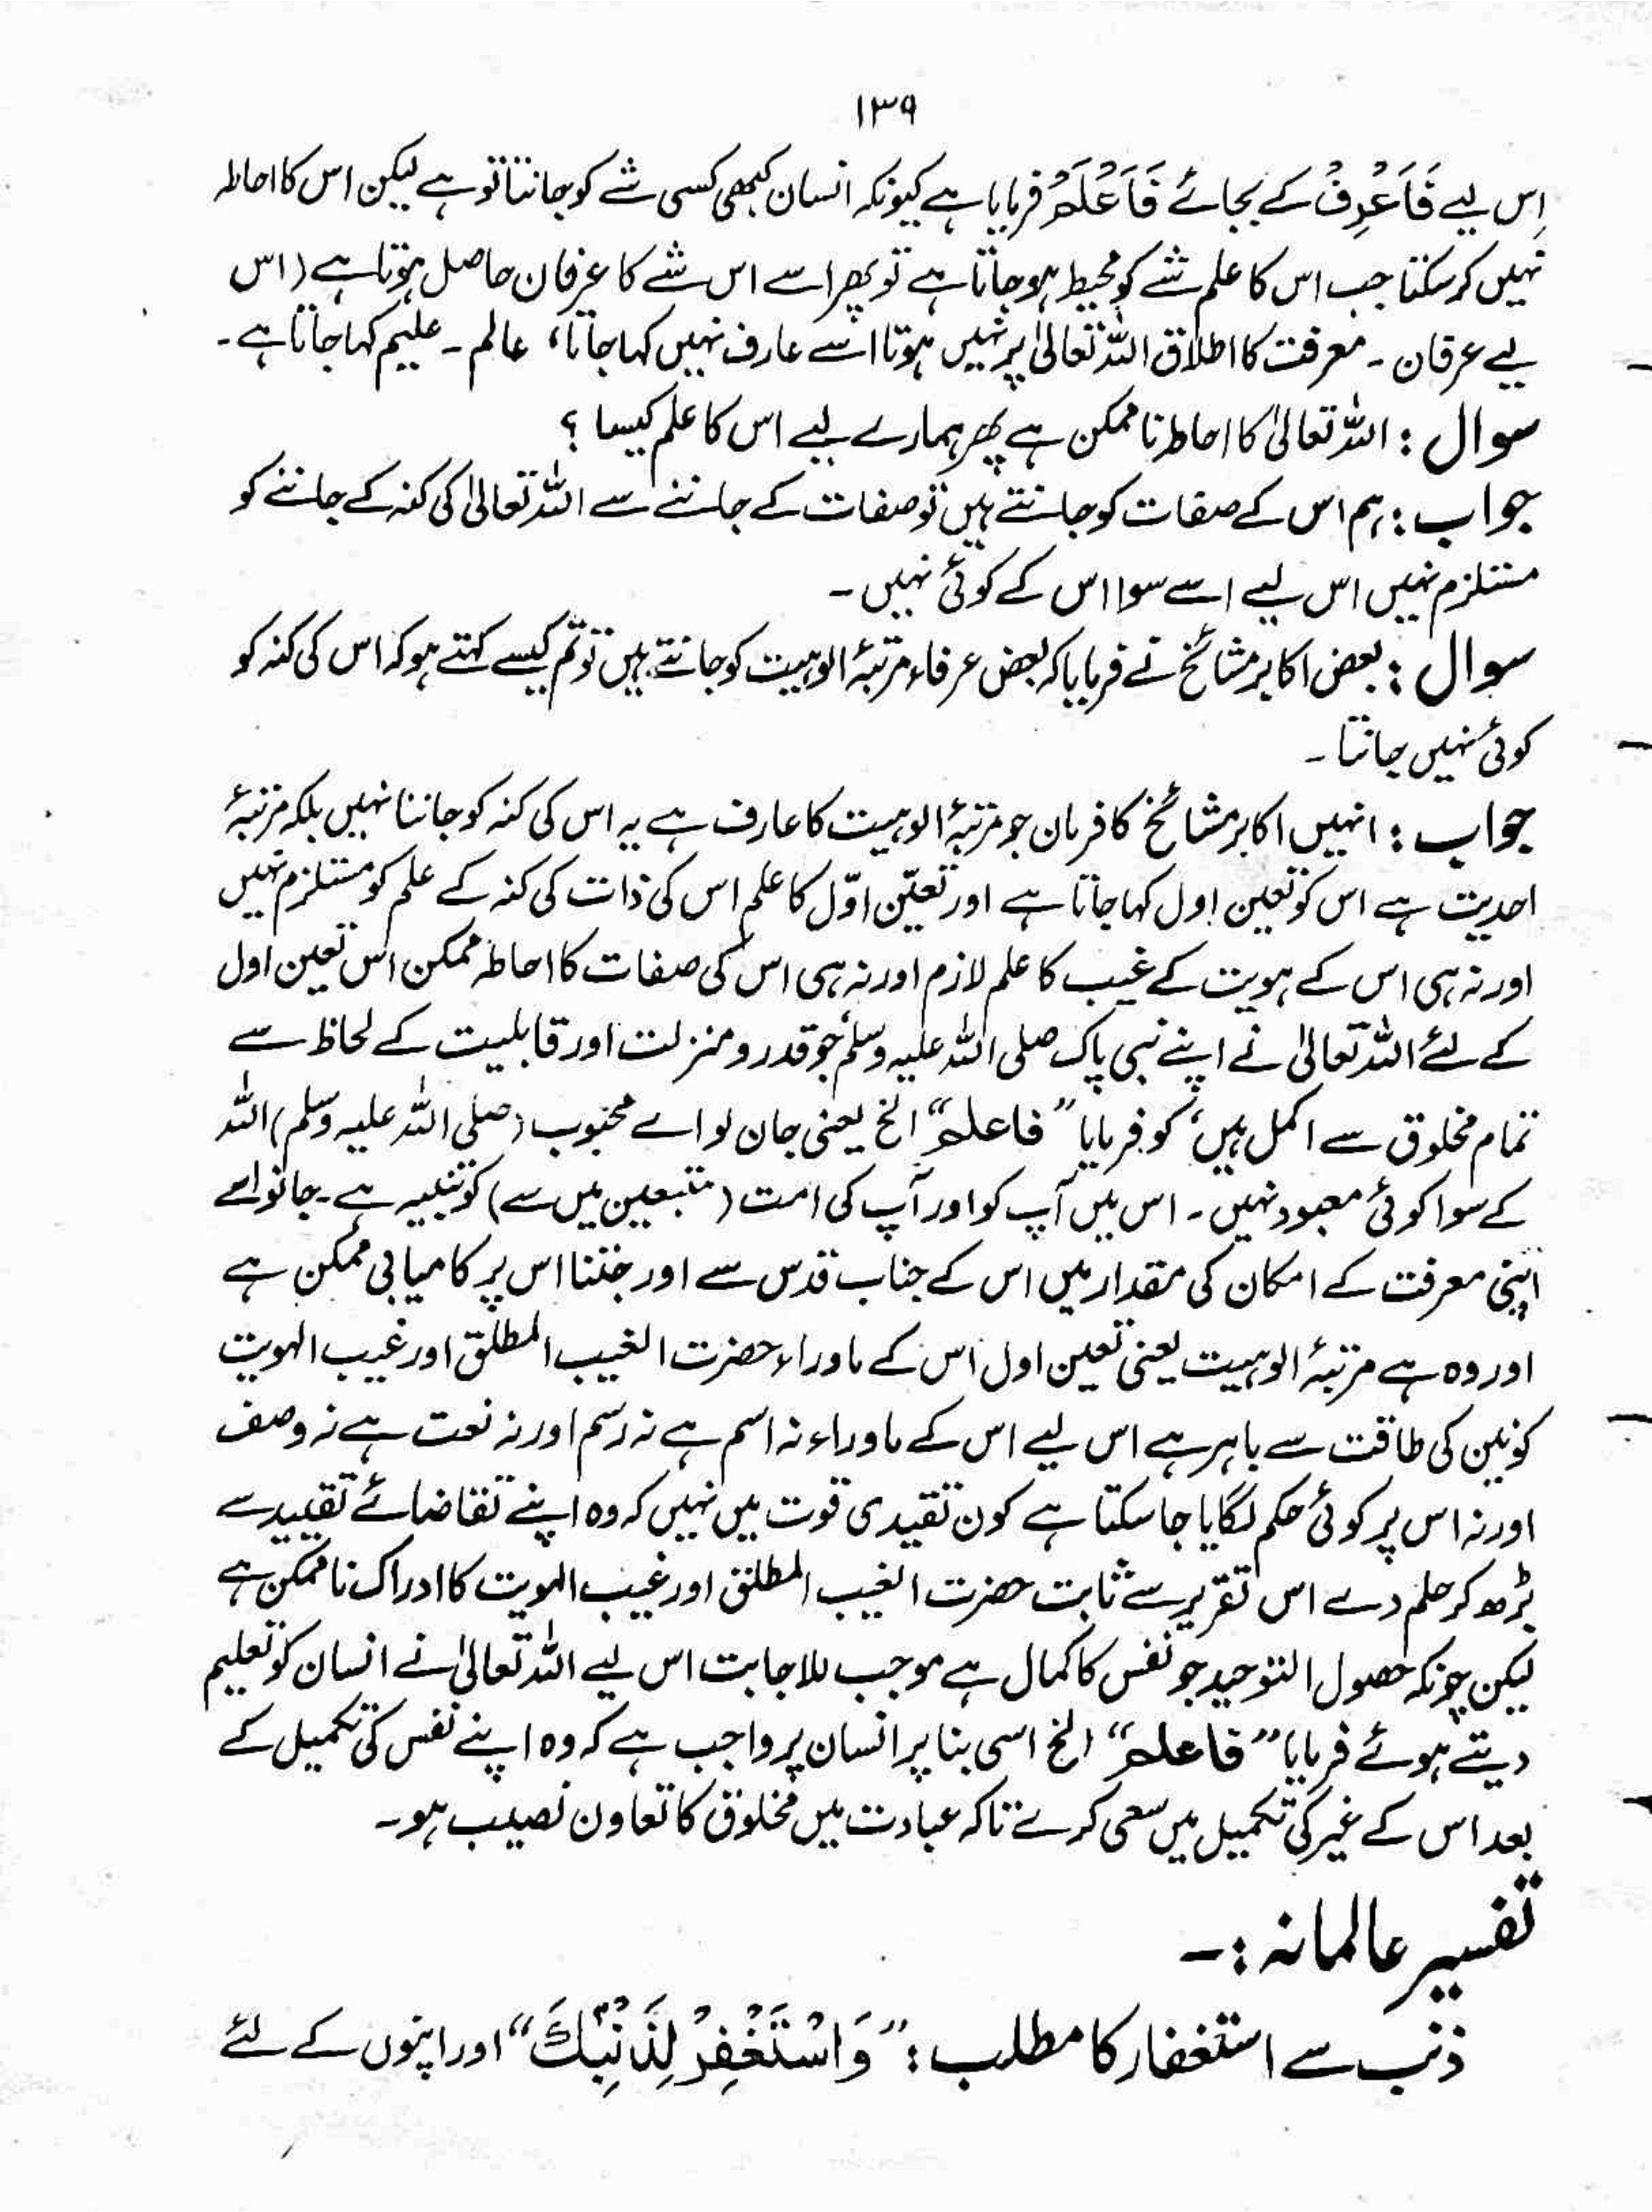 ۱۳۹
اِس لیے فَاَعْرِفْ کے بجائے فَاَعْلَمْ فرمایا ہے کیونکہ انسان کبھی کسی شے کو جانتا تو ہے لیکن اس کا احاطہ
نہیں کر سکتا جب اس کا علم شے کو محیط ہو جاتا ہے تو پھر اسے اس شے کا عرفان حاصل ہوتا ہے (اس
لیے عرفان ۔ معرفت کا اطلاق اللہ تعالیٰ پر نہیں ہوتا اسے عارف نہیں کہا جاتا، عالم ۔ علیم کہا جاتا ہے ۔
سوال : اللہ تعالیٰ کا احاطہ ناممکن ہے پھر ہمارے لیے اس کا علم کیسا ؟
جواب : ہم اس کے صفات کو جانتے ہیں تو صفات کے جاننے سے اللہ تعالیٰ کی کنہ کے جاننے کو
مستلزم نہیں اس لیے اسے سوا اس کے کوئی نہیں ۔
سوال : بعض اکابر مشائخ نے فرمایا کہ بعض عرفاء مرتبۂ الوہیت کو جانتے ہیں تو تم کیسے کہتے ہو کہ اس کی کنہ کو
کوئی نہیں جانتا ۔
جواب : انہیں اکابر مشائخ کا فرمان جو مرتبۂ الوہیت کا عارف ہے یہ اس کی کنہ کو جاننا نہیں بلکہ مرتبۂ
احدیت ہے اس کو تعین اول کہا جاتا ہے اور تعیّن اوّل کا علم اس کی ذات کی کنہ کے علم کو مستلزم نہیں
اور نہ ہی اس کے ہویت کے غیب کا علم لازم اور نہ ہی اس کی صفات کا احاطہ ممکن اس تعین اول
کے لئے اللہ تعالیٰ نے اپنے نبی پاک صلی اللہ علیہ وسلم جو قدر و منزلت اور قابلیت کے لحاظ سے
تمام مخلوق سے اکمل ہیں، کو فرمایا ”فاعلم“ الخ یعنی جان لو اے محبوب (صلی اللہ علیہ وسلم) اللہ
کے سوا کوئی معبود نہیں ۔ اس میں آپ کو اور آپ کی امت (متبعین میں سے) کو تنبیہ ہے ۔ جانو اے
اپنی معرفت کے امکان کی مقدار میں اس کے جناب قدس سے اور جتنا اس پر کامیابی ممکن ہے
اور وہ ہے مرتبۂ الوہیت یعنی تعین اول اس کے ماوراء حضرت الغیب المطلق اور غیب الہویت
کونین کی طاقت سے باہر ہے اس لیے اس کے ماوراء نہ اسم ہے نہ رسم اور نہ نعت ہے نہ وصف
اور نہ اس پر کوئی حکم لگایا جا سکتا ہے کون تقیدی قوت میں نہیں کہ وہ اپنے تقاضائے تقیید سے
بڑھ کر حلم دے اس تقریر سے ثابت حضرت الغیب المطلق اور غیب الہویت کا ادراک ناممکن ہے
لیکن چونکہ حصول التوحید جو نفس کا کمال ہے موجب للاجابت اس لیے اللہ تعالیٰ نے انسان کو تعلیم
دیتے ہوئے فرمایا ”فاعلم“ الخ اسی بنا پر انسان پر واجب ہے کہ وہ اپنے نفس کی تکمیل کے
بعد اس کے غیر کی تکمیل میں سعی کرے تاکہ عبادت میں مخلوق کا تعاون نصیب ہو ۔
تفسیر عالمانہ :-
ذنب سے استغفار کا مطلب : ”وَاسْتَغْفِرْ لِذَنْۢبِكَ“ اور اپنوں کے لئے